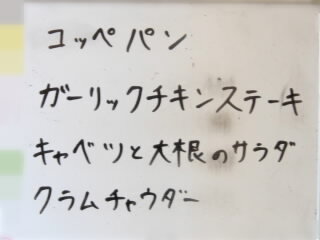 コッペパン
ガーリックチキンステーキ
キャベツと大根のサラダ
クラムチャウダー